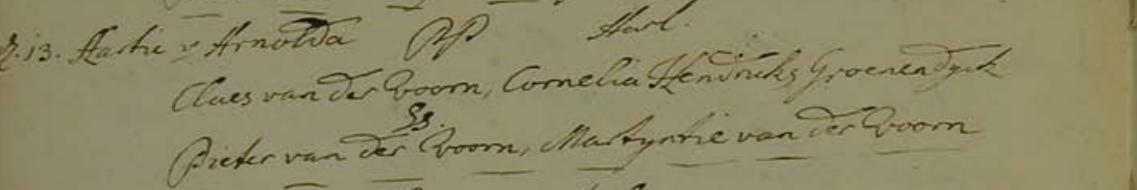 d. 13. Aartie v Arnolda PP Harl.
Claes van der Voorn, Cornelia Hendriks Groenendyck
SS.
Pieter van der Voorn, Martyntie van der Voorn